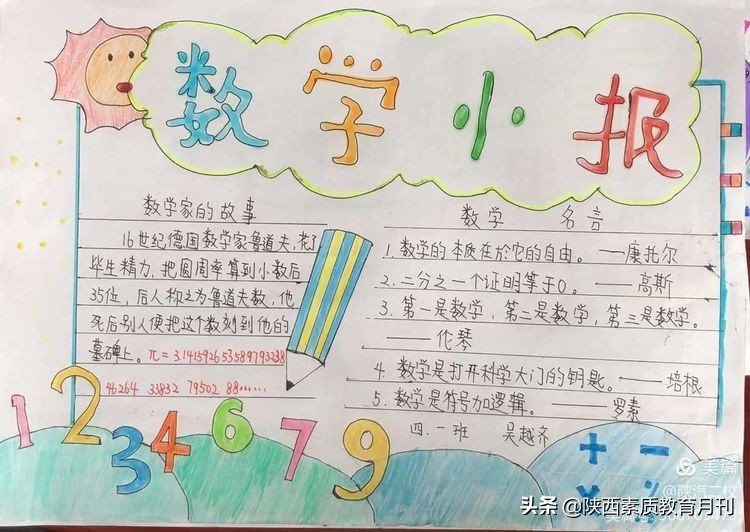 数学小报
数学家的故事
16世纪德国数学家鲁道夫，花了
毕生精力，把圆周率算到小数后
35位，后人称之为鲁道夫数，他
死后别人便把这个数刻到他的
墓碑上。π=3.1415926 53589793238
46264 33832 79502 88……
数学 名言
1. 数学的本质在於它的自由。——康托尔
2. 二分之一个证明等于0。——高斯
3. 第一是数学，第二是数学，第三是数学。
——伦琴
4. 数学是打开科学大门的钥匙。——培根
5. 数学是符号加逻辑。——罗素
四.一班 吴越齐
1 2 3 4 6 7 9
+ - × ÷
美篇
@陕汽二校
头条 @陕西素质教育月刊